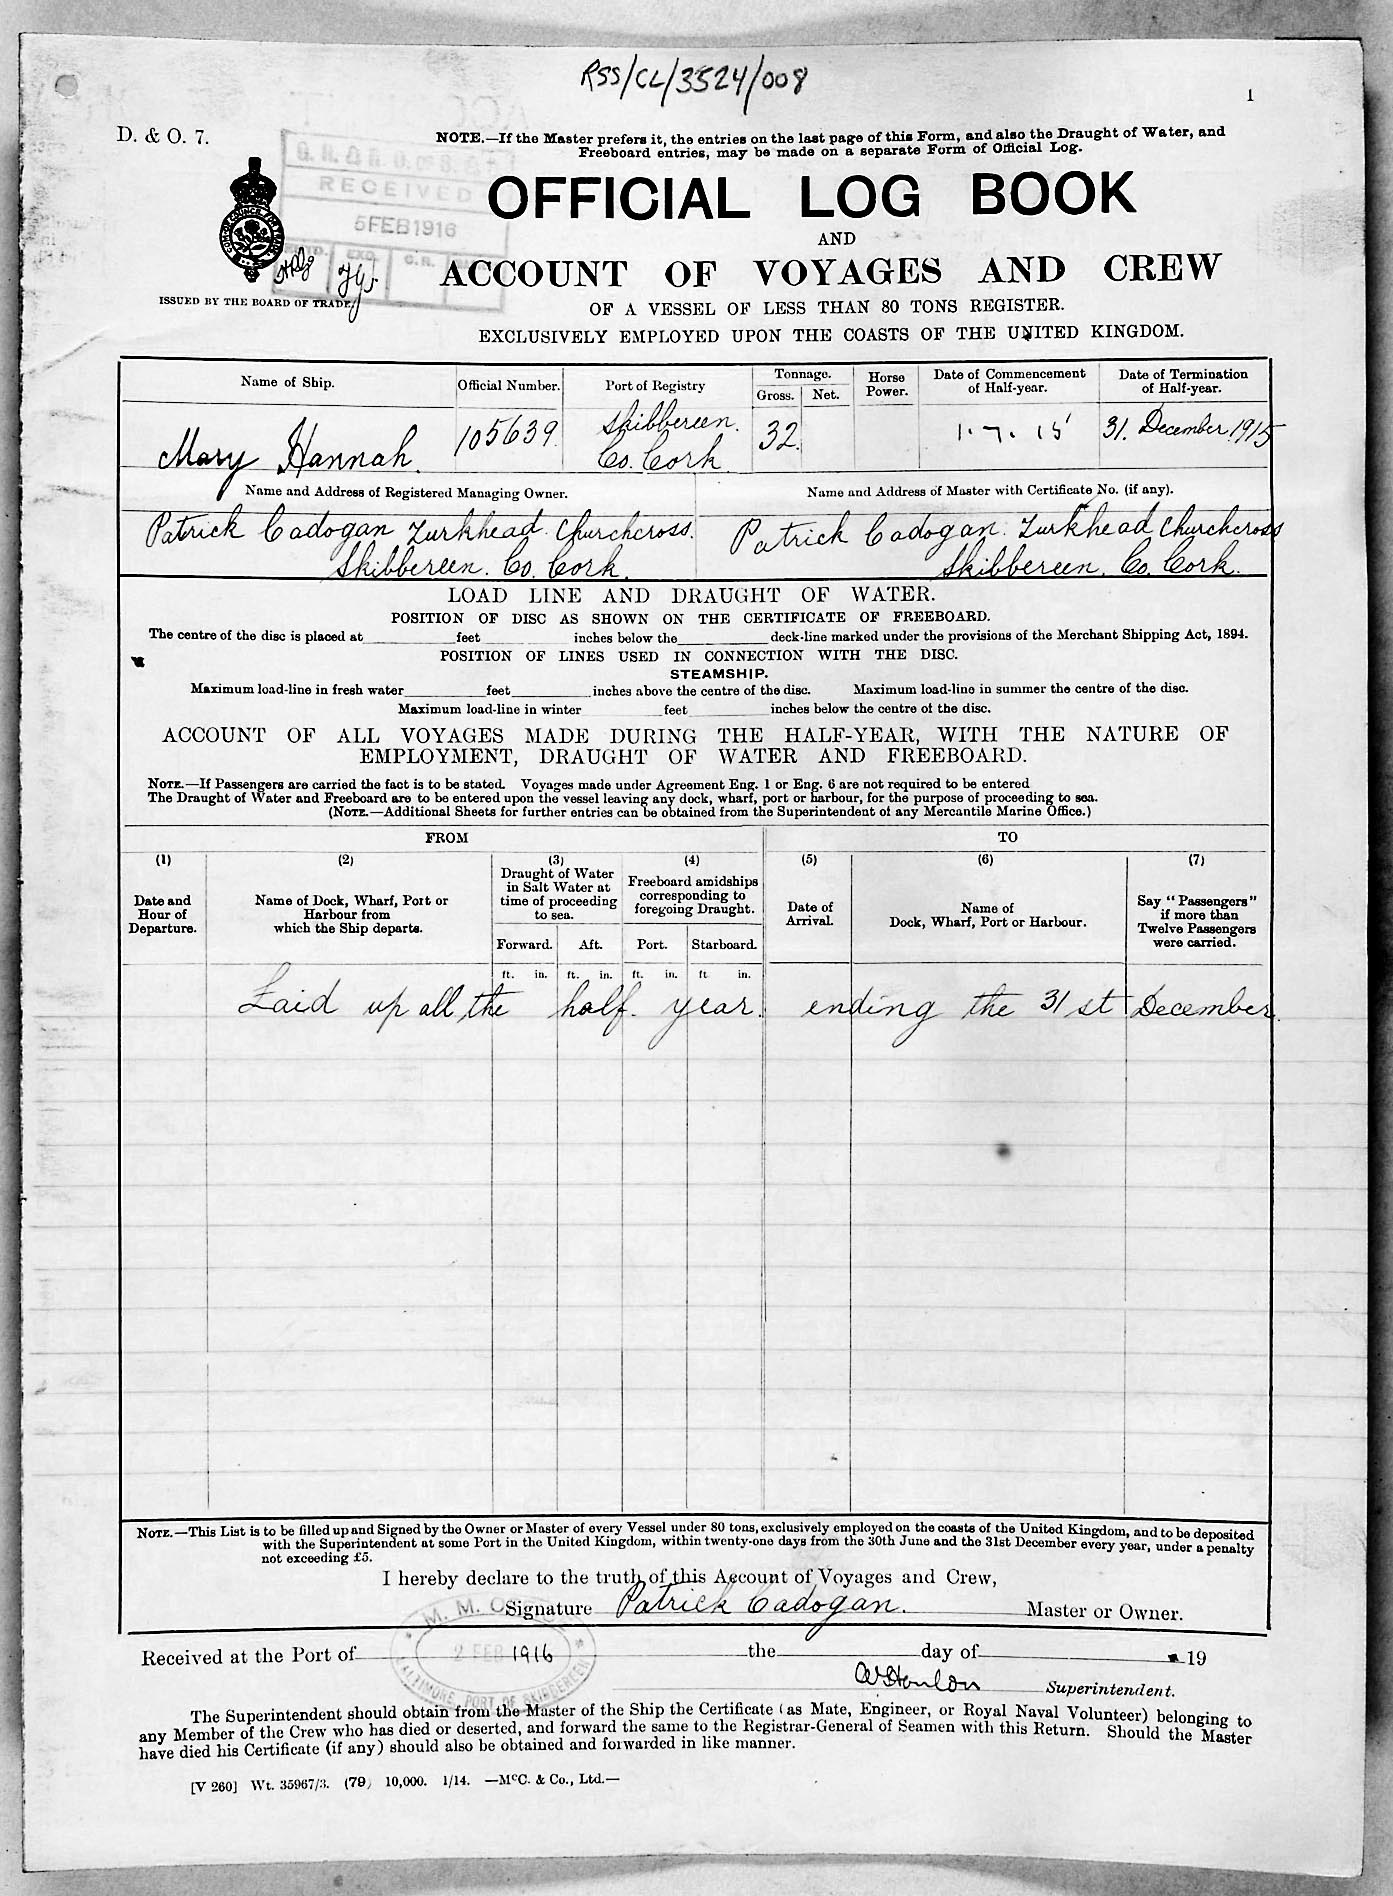 RSS/CL/3524/008
1
D. & O. 7.
NOTE.—If the Master prefers it, the entries on the last page of this Form, and also the Draught of Water, and
Freeboard entries, may be made on a separate Form of Official Log.
RECEIVED
5 FEB 1916
OFFICIAL LOG BOOK
AND
ACCOUNT OF VOYAGES AND CREW
ISSUED BY THE BOARD OF TRADE
OF A VESSEL OF LESS THAN 80 TONS REGISTER.
EXCLUSIVELY EMPLOYED UPON THE COASTS OF THE UNITED KINGDOM.
Name of Ship. Official Number. Port of Registry Tonnage. Gross. Net. Horse Power. Date of Commencement of Half-year. Date of Termination of Half-year.
Mary Hannah. 105639. Skibbereen. Co. Cork 32. 1. 7. 15 31. December 1915
Name and Address of Registered Managing Owner. Name and Address of Master with Certificate No. (if any).
Patrick Cadogan Turkhead Churchcross. Patrick Cadogan. Turkhead Churchcross
Skibbereen. Co. Cork. Skibbereen. Co. Cork.
LOAD LINE AND DRAUGHT OF WATER.
POSITION OF DISC AS SHOWN ON THE CERTIFICATE OF FREEBOARD.
The centre of the disc is placed at feet inches below the deck-line marked under the provisions of the Merchant Shipping Act, 1894.
POSITION OF LINES USED IN CONNECTION WITH THE DISC.
STEAMSHIP.
Maximum load-line in fresh water feet inches above the centre of the disc. Maximum load-line in summer the centre of the disc.
Maximum load-line in winter feet inches below the centre of the disc.
ACCOUNT OF ALL VOYAGES MADE DURING THE HALF-YEAR, WITH THE NATURE OF
EMPLOYMENT, DRAUGHT OF WATER AND FREEBOARD.
NOTE.—If Passengers are carried the fact is to be stated. Voyages made under Agreement Eng. 1 or Eng. 6 are not required to be entered
The Draught of Water and Freeboard are to be entered upon the vessel leaving any dock, wharf, port or harbour, for the purpose of proceeding to sea.
(NOTE.—Additional Sheets for further entries can be obtained from the Superintendent of any Mercantile Marine Office.)
FROM TO
(1) (2) (3) (4) (5) (6) (7)
Date and Hour of Departure. Name of Dock, Wharf, Port or Harbour from which the Ship departs. Draught of Water in Salt Water at time of proceeding to sea. Freeboard amidships corresponding to foregoing Draught. Date of Arrival. Name of Dock, Wharf, Port or Harbour. Say "Passengers" if more than Twelve Passengers were carried.
Forward. Aft. Port. Starboard.
ft. in. ft. in. ft. in. ft in.
Laid up all the half year. ending the 31st December.
NOTE.—This List is to be filled up and Signed by the Owner or Master of every Vessel under 80 tons, exclusively employed on the coasts of the United Kingdom, and to be deposited
with the Superintendent at some Port in the United Kingdom, within twenty-one days from the 30th June and the 31st December every year, under a penalty
not exceeding £5.
I hereby declare to the truth of this Account of Voyages and Crew,
Signature Patrick Cadogan. Master or Owner.
M. M. OFFICE
2 FEB 1916
BALTIMORE, PORT OF SKIBBEREEN
Received at the Port of the day of 19
Superintendent.
The Superintendent should obtain from the Master of the Ship the Certificate (as Mate, Engineer, or Royal Naval Volunteer) belonging to
any Member of the Crew who has died or deserted, and forward the same to the Registrar-General of Seamen with this Return. Should the Master
have died his Certificate (if any) should also be obtained and forwarded in like manner.
[V 260] Wt. 35967/3. (79) 10,000. 1/14. —McC. & Co., Ltd.—